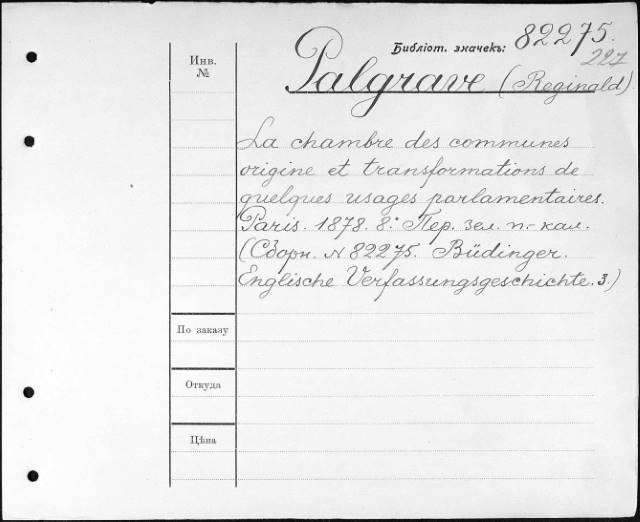 Библіот. значекъ: 82275.
227
Инв.
№
Palgrave (Reginald).
La chambre des communes
origine et transformations de
quelques usages parlamentaires.
Paris. 1878. 8.° Пер. зел. п.-кал.
(Сборн. N 82275. Büdinger.
Englische Verfassungsgeschichte. 3.)
По заказу
Откуда
Цѣна